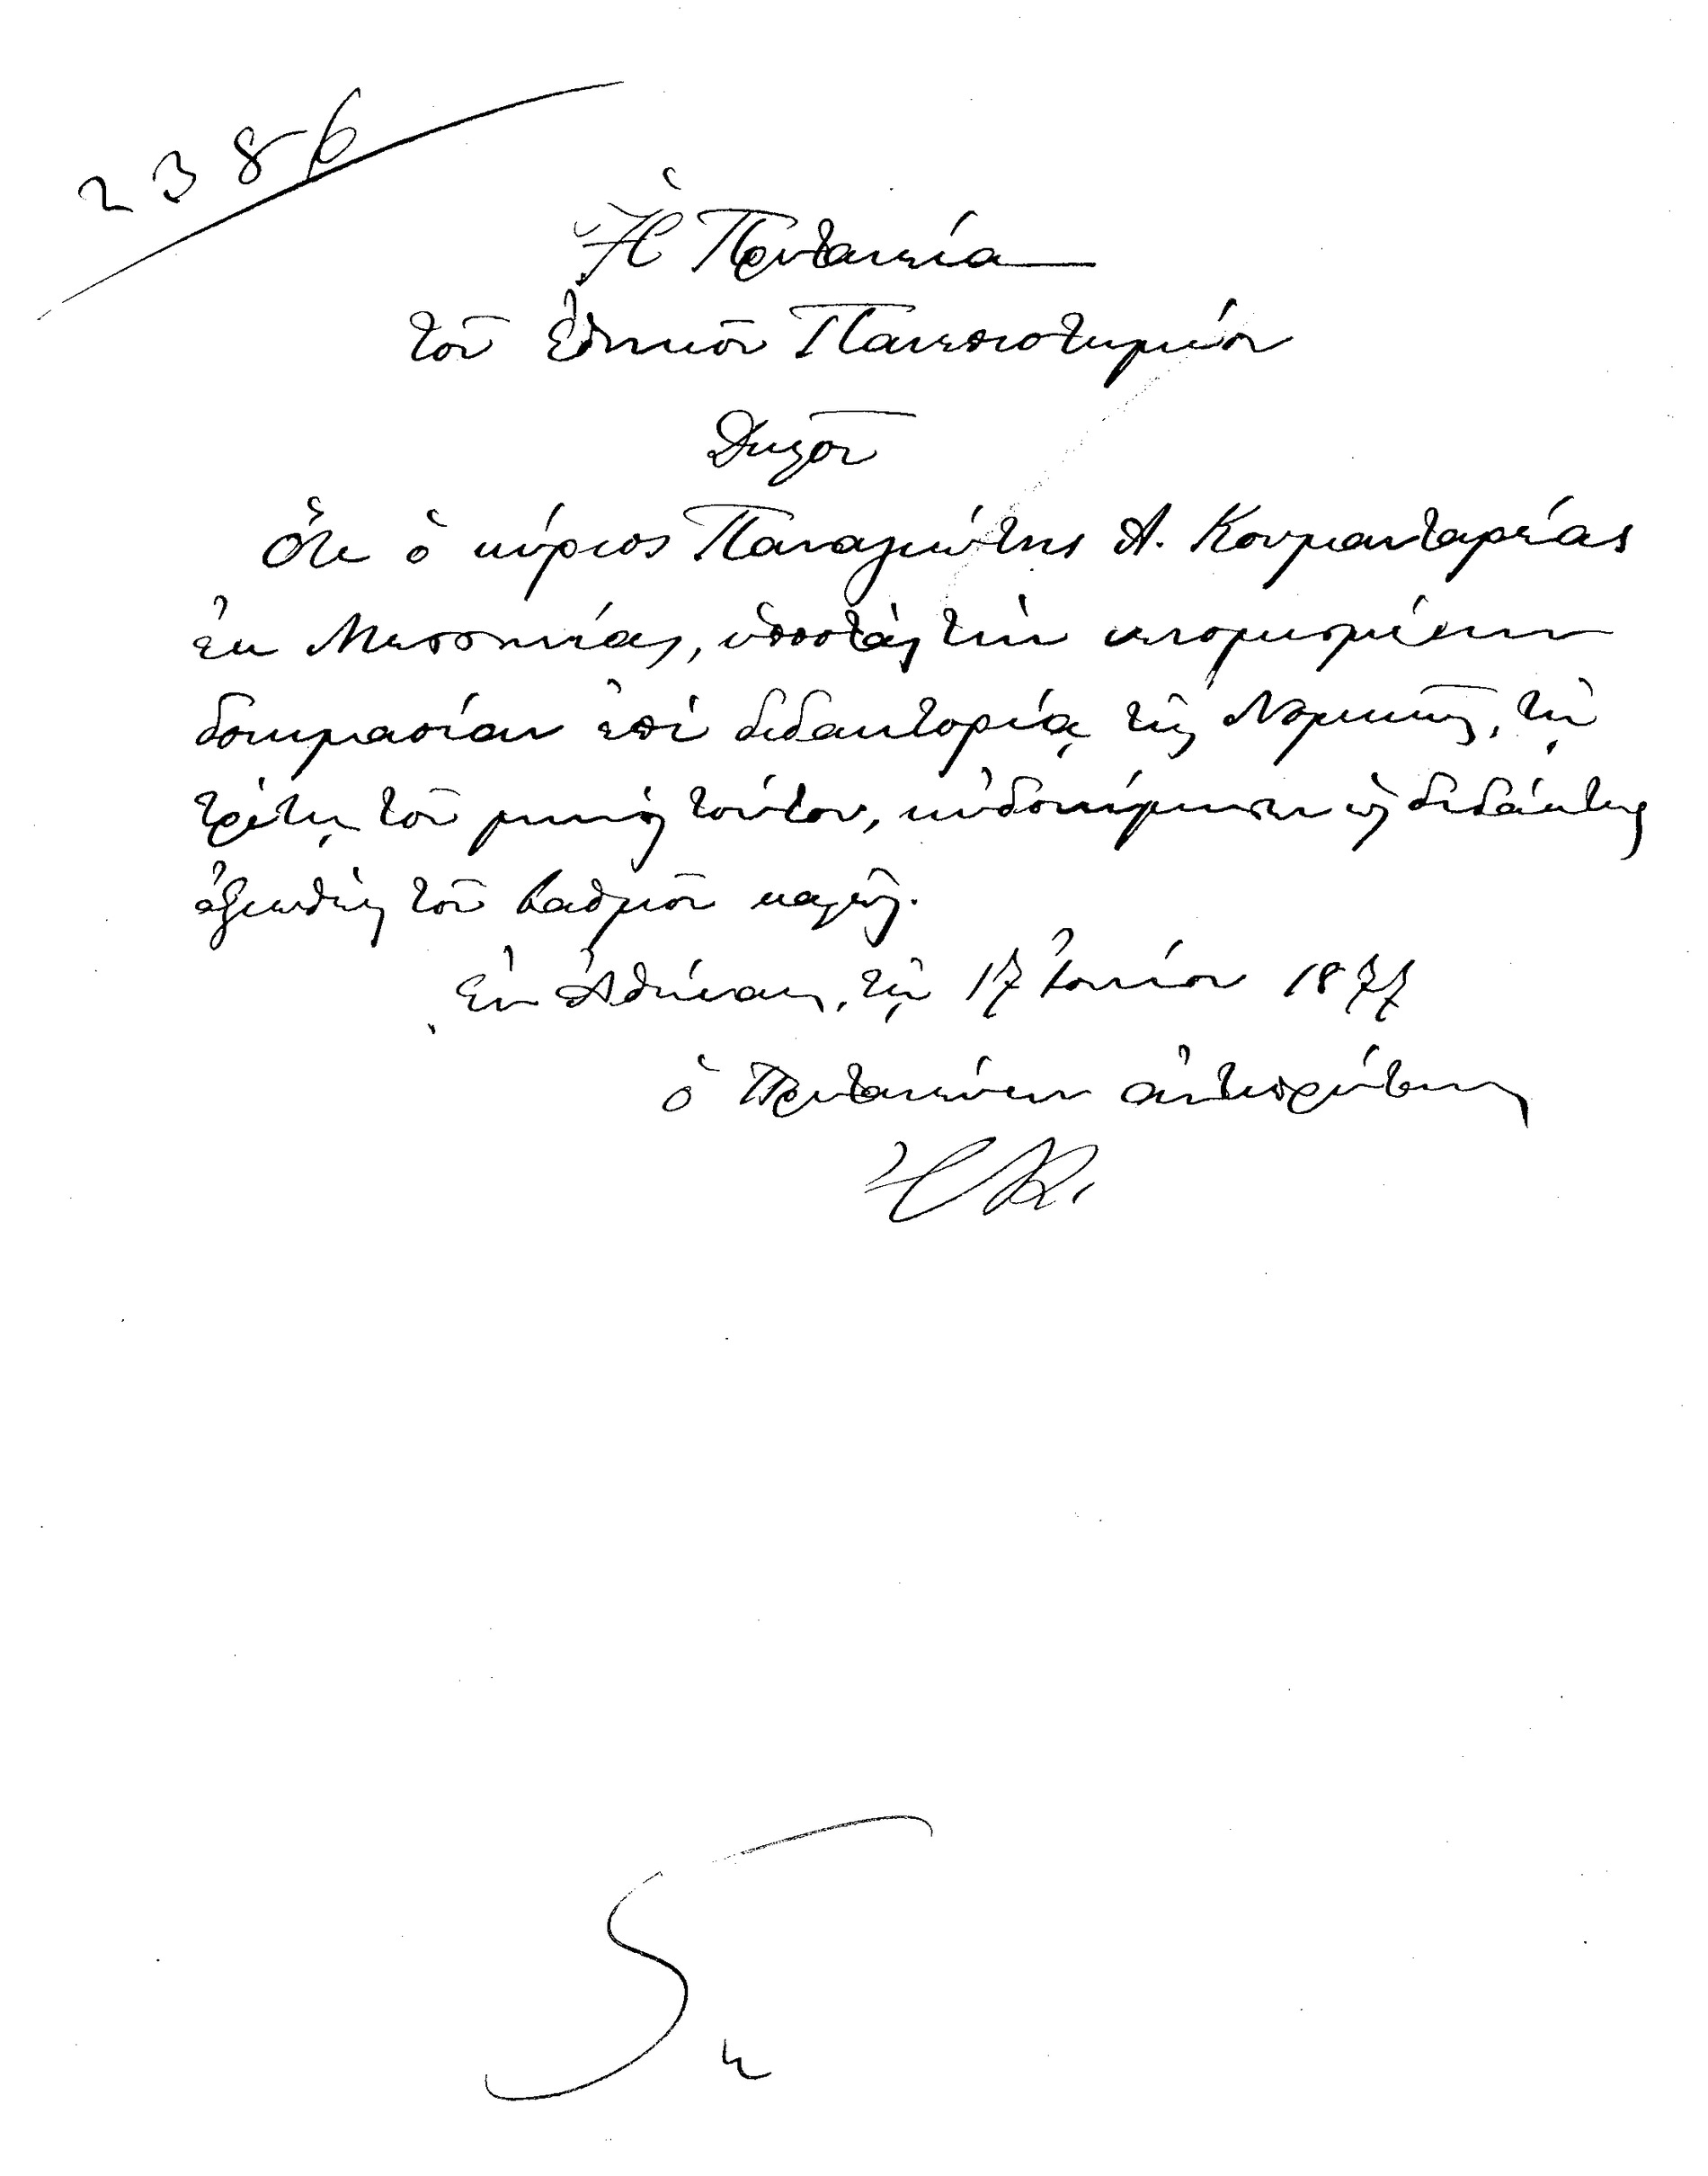 2386
Ἡ Πρυτανεία
τοῦ Ἐθνικοῦ Πανεπιστημίου
Δηλοῖ
Ὅτι ὁ κύριος Παναγιώτης Α. Κουμανταρέας
ἐκ Μεσσηνίας, ὑποστὰς τὴν νενομισμένην
δοκιμασίαν ἐπὶ διδακτορίᾳ τῆς Νομικῆς, τῇ
τρίτῃ τοῦ μηνὸς τούτου, ηὐδοκίμησεν ὡς διδάκτωρ
ἀξιωθεὶς τοῦ βαθμοῦ καλῶς.
Ἐν Ἀθήναις, τῇ 17 Ἰουνίου 1877
ὁ Πρυτανεύων ἀντιπρύτανις